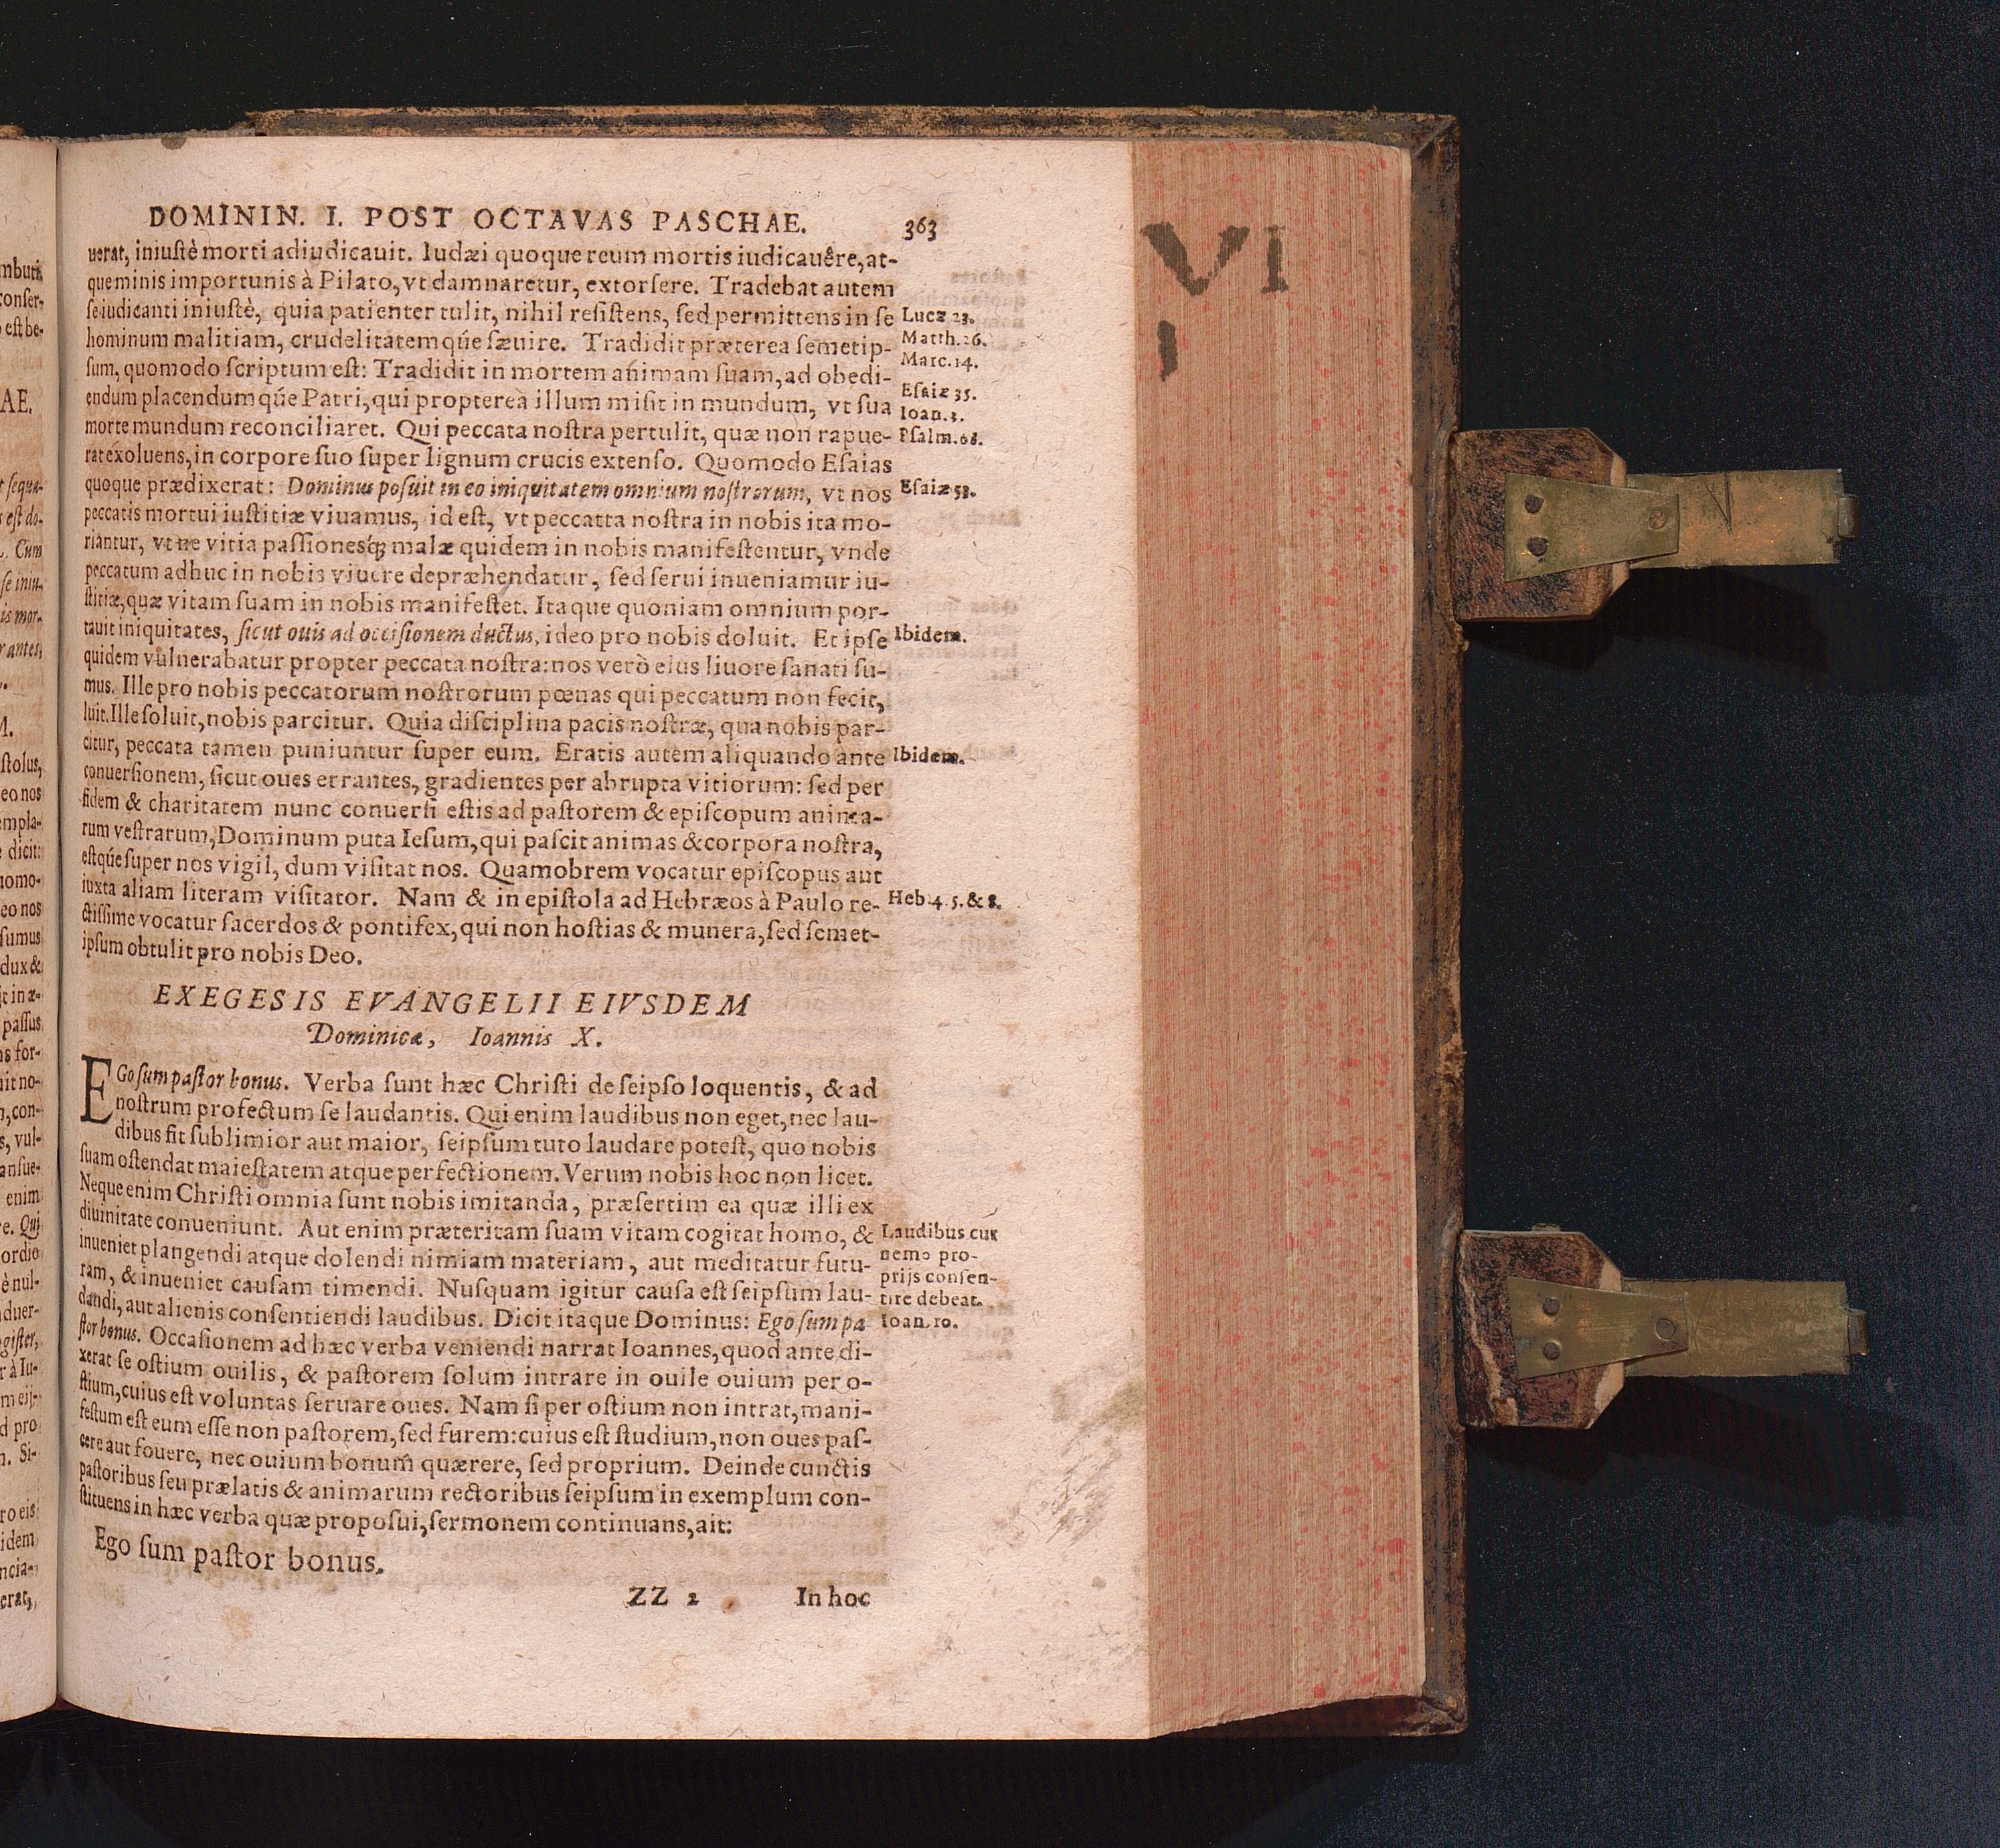 DOMININ. I. POST OCTAVAS PASCHAE. 363
uerat, iniuſtè morti adiudicauit. Iudæi quoque reum mortis iudicauêre, at-
que minis importunis à Pilato, vt damnaretur, extorſere. Tradebat autem
ſe iudicanti iniuſtè, quia patienter tulit, nihil reſiſtens, ſed permittens in ſe
Lucæ 23.
hominum malitiam, crudelitatemq́ue ſæuire. Tradidit præterea ſemetip-
Matth. 26.
Marc. 14.
ſum, quomodo ſcriptum eſt: Tradidit in mortem animam ſuam, ad obedi-
Eſaiæ 35.
endum placendumq́ue Patri, qui propterea illum miſit in mundum, vt ſua
Ioan. 3.
morte mundum reconciliaret. Qui peccata noſtra pertulit, quæ non rapue-
Pſalm. 68.
rat exoluens, in corpore ſuo ſuper lignum crucis extenſo. Quomodo Eſaias
quoque prædixerat: Dominus poſuit in eo iniquitatem omnium noſtrorum, vt nos
Eſaiæ 53.
peccatis mortui iuſtitiæ viuamus, id eſt, vt peccatta noſtra in nobis ita mo-
riantur, vt ne vitia paſſionesq́ꝫ malæ quidem in nobis manifeſtentur, vnde
peccatum adhuc in nobis viuere depræhendatur, ſed ſerui inueniamur iu-
ſtitiæ, quæ vitam ſuam in nobis manifeſtet. Itaque quoniam omnium por-
tauit iniquitates, ſicut ouis ad occiſionem ductus, ideo pro nobis doluit. Et ipſe
Ibidem.
quidem vulnerabatur propter peccata noſtra: nos verò eius liuore ſanati ſu-
mus. Ille pro nobis peccatorum noſtrorum pœnas qui peccatum non fecit,
luit. Ille ſoluit, nobis parcitur. Quia diſciplina pacis noſtræ, qua nobis par-
citur, peccata tamen puniuntur ſuper eum. Eratis autem aliquando ante
Ibidem.
conuerſionem, ſicut oues errantes, gradientes per abrupta vitiorum: ſed per
fidem & charitatem nunc conuerſi eſtis ad paſtorem & epiſcopum anima-
rum veſtrarum, Dominum puta Ieſum, qui paſcit animas & corpora noſtra,
eſtq́ue ſuper nos vigil, dum viſitat nos. Quamobrem vocatur epiſcopus aut
iuxta aliam literam viſitator. Nam & in epiſtola ad Hebræos à Paulo re-
Heb. 4. 5. & 8.
ctiſſime vocatur ſacerdos & pontifex, qui non hoſtias & munera, ſed ſemet-
ipſum obtulit pro nobis Deo.
EXEGESIS EVANGELII EIVSDEM
Dominicæ, Ioannis X.
EGo ſum paſtor bonus. Verba ſunt hæc Chriſti de ſeipſo loquentis, & ad
noſtrum profectum ſe laudantis. Qui enim laudibus non eget, nec lau-
dibus fit ſublimior aut maior, ſeipſum tuto laudare poteſt, quo nobis
ſuam oſtendat maieſtatem atque perfectionem. Verum nobis hoc non licet.
Neque enim Chriſti omnia ſunt nobis imitanda, præſertim ea quæ illi ex
diuinitate conueniunt. Aut enim præteritam ſuam vitam cogitat homo, &
Laudibus cur
nemo pro-
prijs conſen-
tire debeat.
inueniet plangendi atque dolendi nimiam materiam, aut meditatur futu-
ram, & inueniet cauſam timendi. Nuſquam igitur cauſa eſt ſeipſum lau-
dandi, aut alienis conſentiendi laudibus. Dicit itaque Dominus: Ego ſum pa
Ioan. 10.
ſtor bonus. Occaſionem ad hæc verba veniendi narrat Ioannes, quod ante di-
xerat ſe oſtium ouilis, & paſtorem ſolum intrare in ouile ouium per o-
ſtium, cuius eſt voluntas ſeruare oues. Nam ſi per oſtium non intrat, mani-
feſtum eſt eum eſſe non paſtorem, ſed furem: cuius eſt ſtudium, non oues paſ-
cere aut fouere, nec ouium bonum quærere, ſed proprium. Deinde cunctis
paſtoribus ſeu prælatis & animarum rectoribus ſeipſum in exemplum con-
ſtituens in hæc verba quæ propoſui, ſermonem continuans, ait:
Ego ſum paſtor bonus.
ZZ 2 In hoc
VI